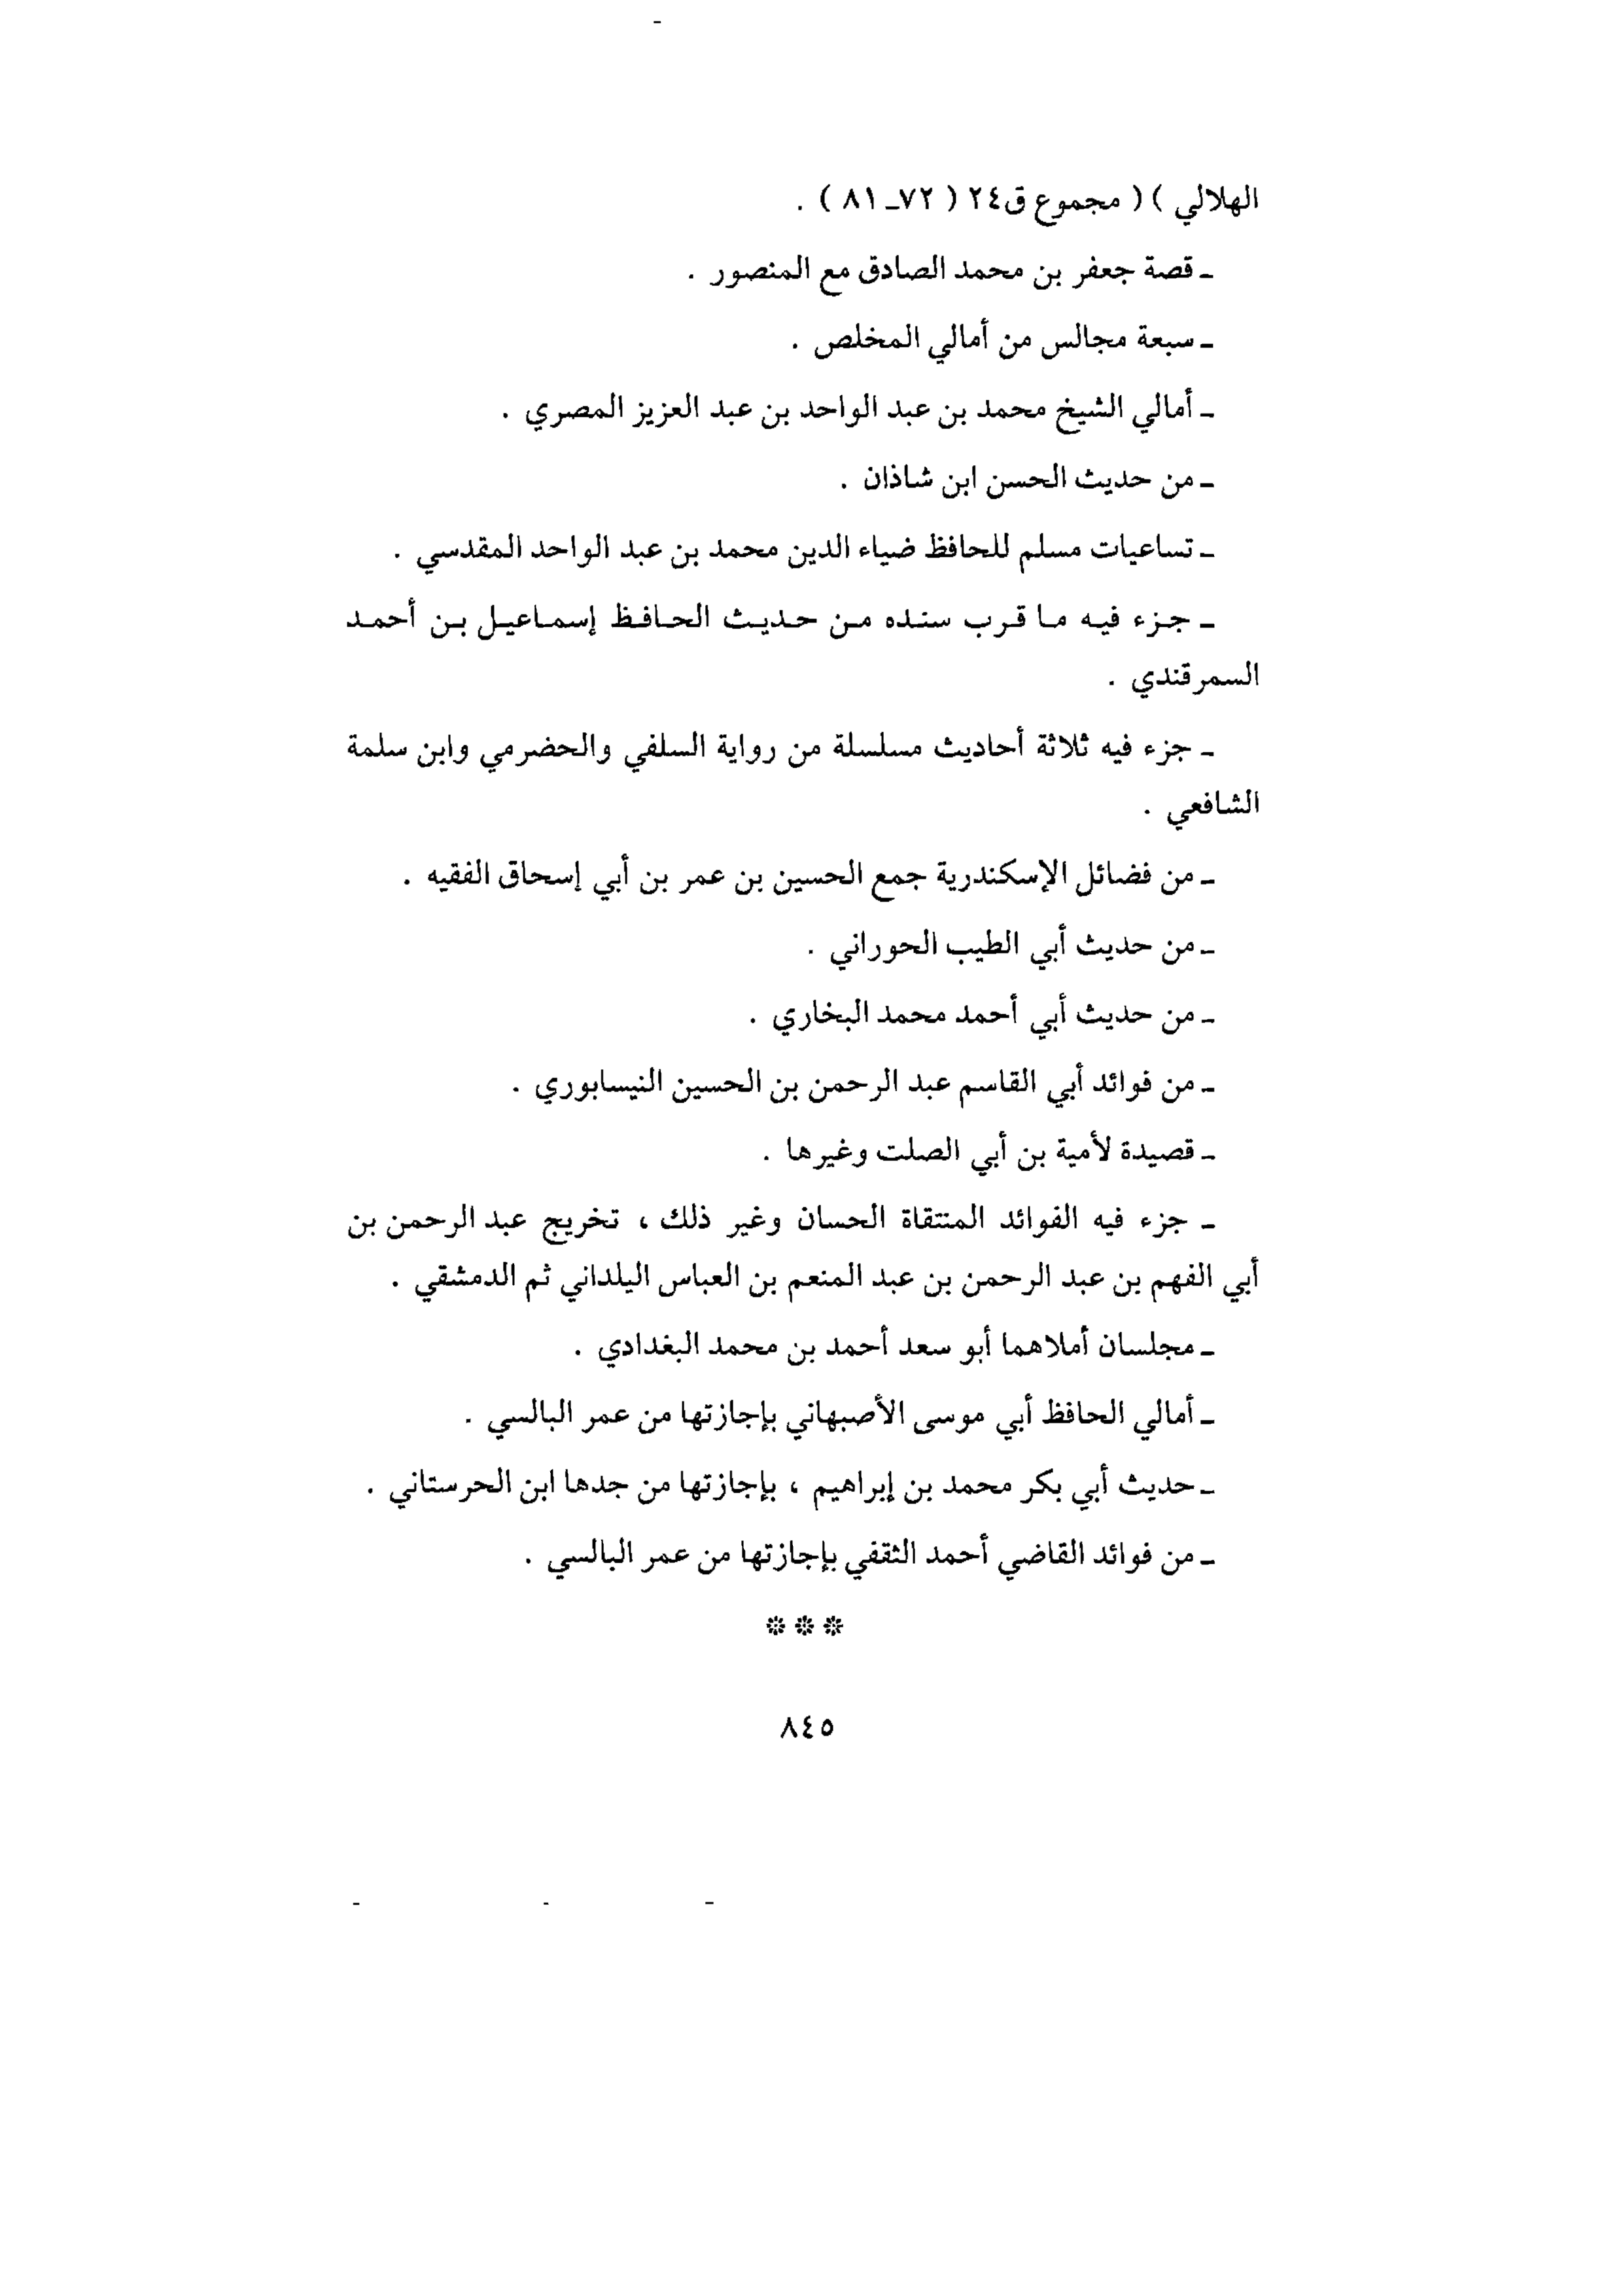 الهلالي ) ( مجموع ق٢٤ ( ٧٢ـ ٨١ ) .
ـ قصة جعفر بن محمد الصادق مع المنصور .
ـ سبعة مجالس من أمالي المخلص .
ـ أمالي الشيخ محمد بن عبد الواحد بن عبد العزيز المصري .
ـ من حديث الحسن ابن شاذان .
ـ تساعيات مسلم للحافظ ضياء الدين محمد بن عبد الواحد المقدسي .
ـ جزء فيه ما قرب سنده من حديث الحافظ إسماعيل بن أحمد
السمرقندي .
ـ جزء فيه ثلاثة أحاديث مسلسلة من رواية السلفي والحضرمي وابن سلمة
الشافعي .
ـ من فضائل الإسكندرية جمع الحسين بن عمر بن أبي إسحاق الفقيه .
ـ من حديث أبي الطيب الحوراني .
ـ من حديث أبي أحمد محمد البخاري .
ـ من فوائد أبي القاسم عبد الرحمن بن الحسين النيسابوري .
ـ قصيدة لأمية بن أبي الصلت وغيرها .
ـ جزء فيه الفوائد المنتقاة الحسان وغير ذلك ، تخريج عبد الرحمن بن
أبي الفهم بن عبد الرحمن بن عبد المنعم بن العباس اليلداني ثم الدمشقي .
ـ مجلسان أملاهما أبو سعد أحمد بن محمد البغدادي .
ـ أمالي الحافظ أبي موسى الأصبهاني بإجازتها من عمر البالسي .
ـ حديث أبي بكر محمد بن إبراهيم ، بإجازتها من جدها ابن الحرستاني .
ـ من فوائد القاضي أحمد الثقفي بإجازتها من عمر البالسي .
***
٨٤٥